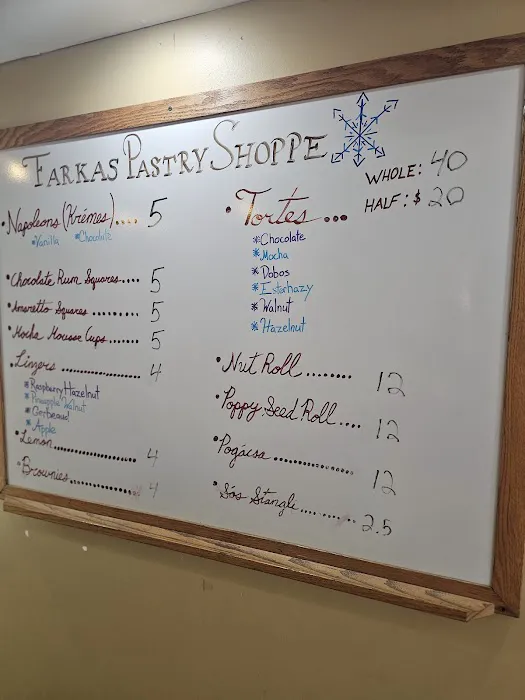 FARKAS PASTRY SHOPPE
• Napoleons (Krémes).... 5
*Vanilla *Chocolate
• Chocolate Rum Squares..... 5
• Amaretto Squares ......... 5
• Mocha Mousse Cups....... 5
• Linzers .................... 4
* Raspberry Hazelnut
* Pineapple Walnut
* Gerbeaud
* Apple
• Lemon.................... 4
• Brownies................. 4
• Tortes ...
WHOLE: 40
HALF: $ 20
* Chocolate
* Mocha
* Dobos
* Esterhazy
* Walnut
* Hazelnut
• Nut Roll ........ 12
• Poppy Seed Roll .... 12
• Pogácsa .............. 12
• Sós Stangli.......... 2.5